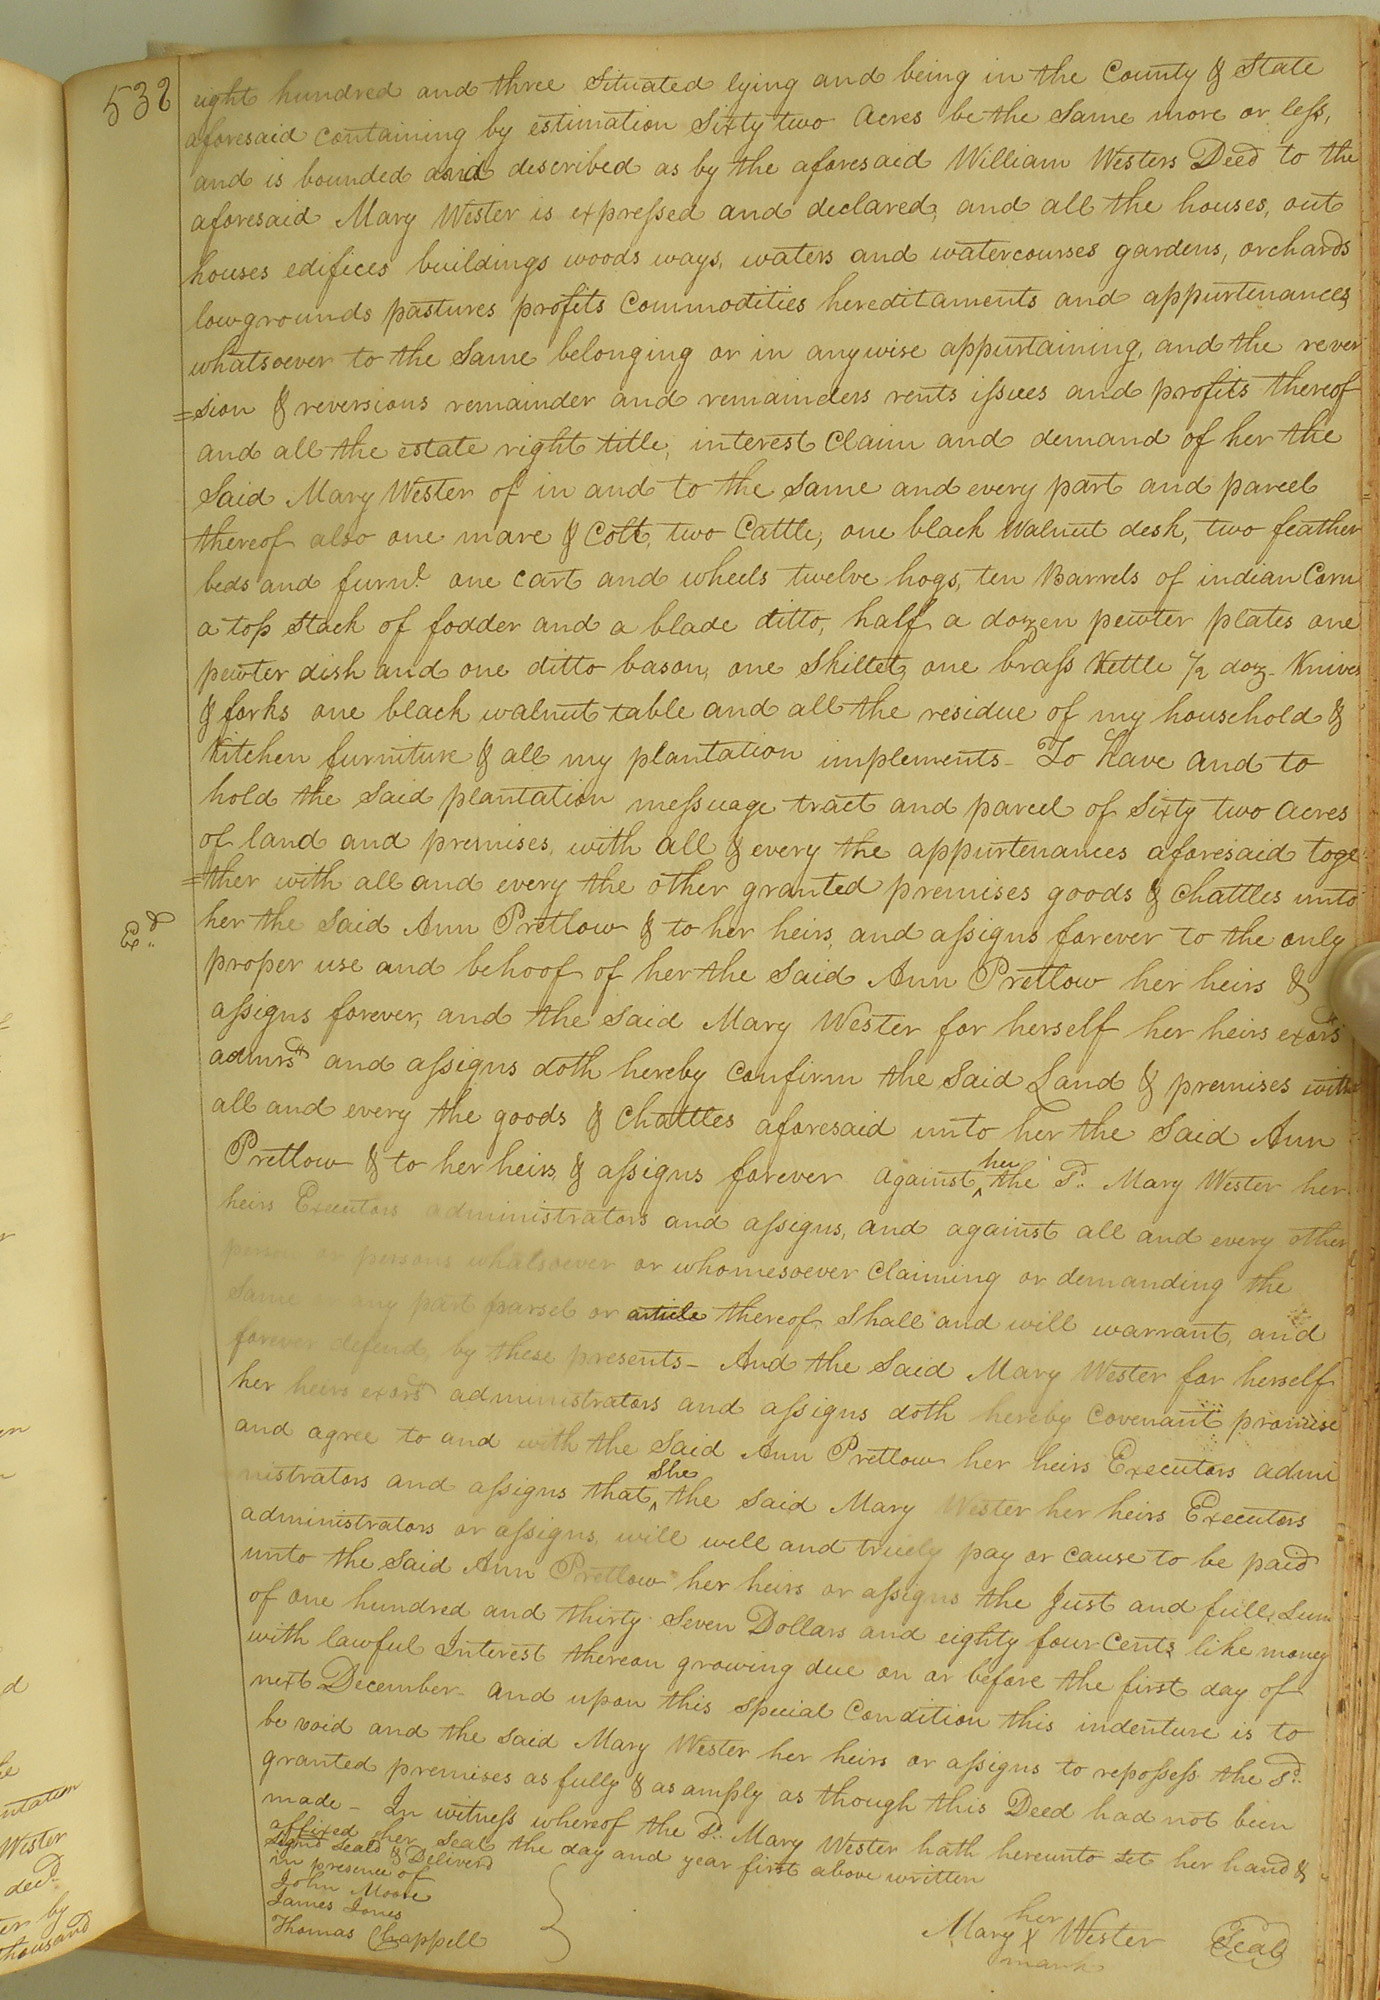 538
eight hundred and three Situated lying and being in the County & State
aforesaid containing by estimation Sixty two Acres be the Same more or leſs,
and is bounded and described as by the aforesaid William Westers Deed to the
aforesaid Mary Wester is expreſsed and declared, and all the houses, out
houses edifices buildings woods ways, waters and watercourses gardens, orchards
lowgrounds pastures profits Commodities hereditaments and appurtenances
whatsoever to the Same belonging or in anywise appurtaining, and the rever
=sion & reversions remainder and remainders rents iſsues and profits thereof
and all the estate right title, interest Claim and demand of her the
Said Mary Wester of in and to the Same and every part and parcel
thereof also one mare & Colt, two Cattle, one black Walnut desk, two feather
beds and furn.e one cart and wheels twelve hogs, ten Barrels of indian Corn
a top Stack of fodder and a blade ditto, half a dozen pewter plates one
pewter dish and one ditto bason, one Skillet, one braſs Kettle 1/2 doz. Knives
& forks one black walnut table and all the residue of my household &
Kitchen furniture & all my plantation implements - To have and to
hold the Said plantation meſsuage tract and parcel of Sixty two acres
of land and premises, with all & every the appurtenances aforesaid toge
=ther with all and every the other granted premises goods & Chattles unto
Ex.d
her the Said Ann Pretlow & to her heirs, and aſsigns forever to the only
proper use and behoof of her the Said Ann Pretlow her heirs &
aſsigns forever, and the Said Mary Wester for herself her heirs exors
admrs and aſsigns doth hereby Confirm the Said Land & premises with
all and every the goods & Chattles aforesaid unto her the Said Ann
Pretlow & to her heirs, & aſsigns forever against her the Sd. Mary Wester her
heirs Executors administrators and aſsigns, and against all and every other
person or persons whatsoever or whomesoever Claiming or demanding the
Same or any part parsel or article thereof Shall and will warrant, and
forever defend, by these presents - And the Said Mary Wester for herself
her heirs exors administrators and aſsigns doth hereby Covenant promise
and agree to and with the Said Ann Pretlow her heirs Executors admi
nistrators and aſsigns that She the Said Mary Wester her heirs Executors
administrators or aſsigns, will well and truely pay or cause to be paid
unto the Said Ann Pretlow her heirs or aſsigns the Just and full Sum
of one hundred and thirty Seven Dollars and eighty four Cents like money
with lawful Interest thereon growing due on or before the first day of
next December - and upon this Special Condition this indenture is to
be void and the Said Mary Wester her heirs or aſsigns to repoſseſs the Sd.
granted premises as fully & as amply as though this Deed had not been
made - In witneſs whereof the Sd. Mary Wester hath hereunto Set her hand &
affixed her Seal the day and year first above written
Signd Seald & Deliverd
in presence of
John Moore
James Jones
Thomas Chappell
her
Mary X Wester Seal
mark